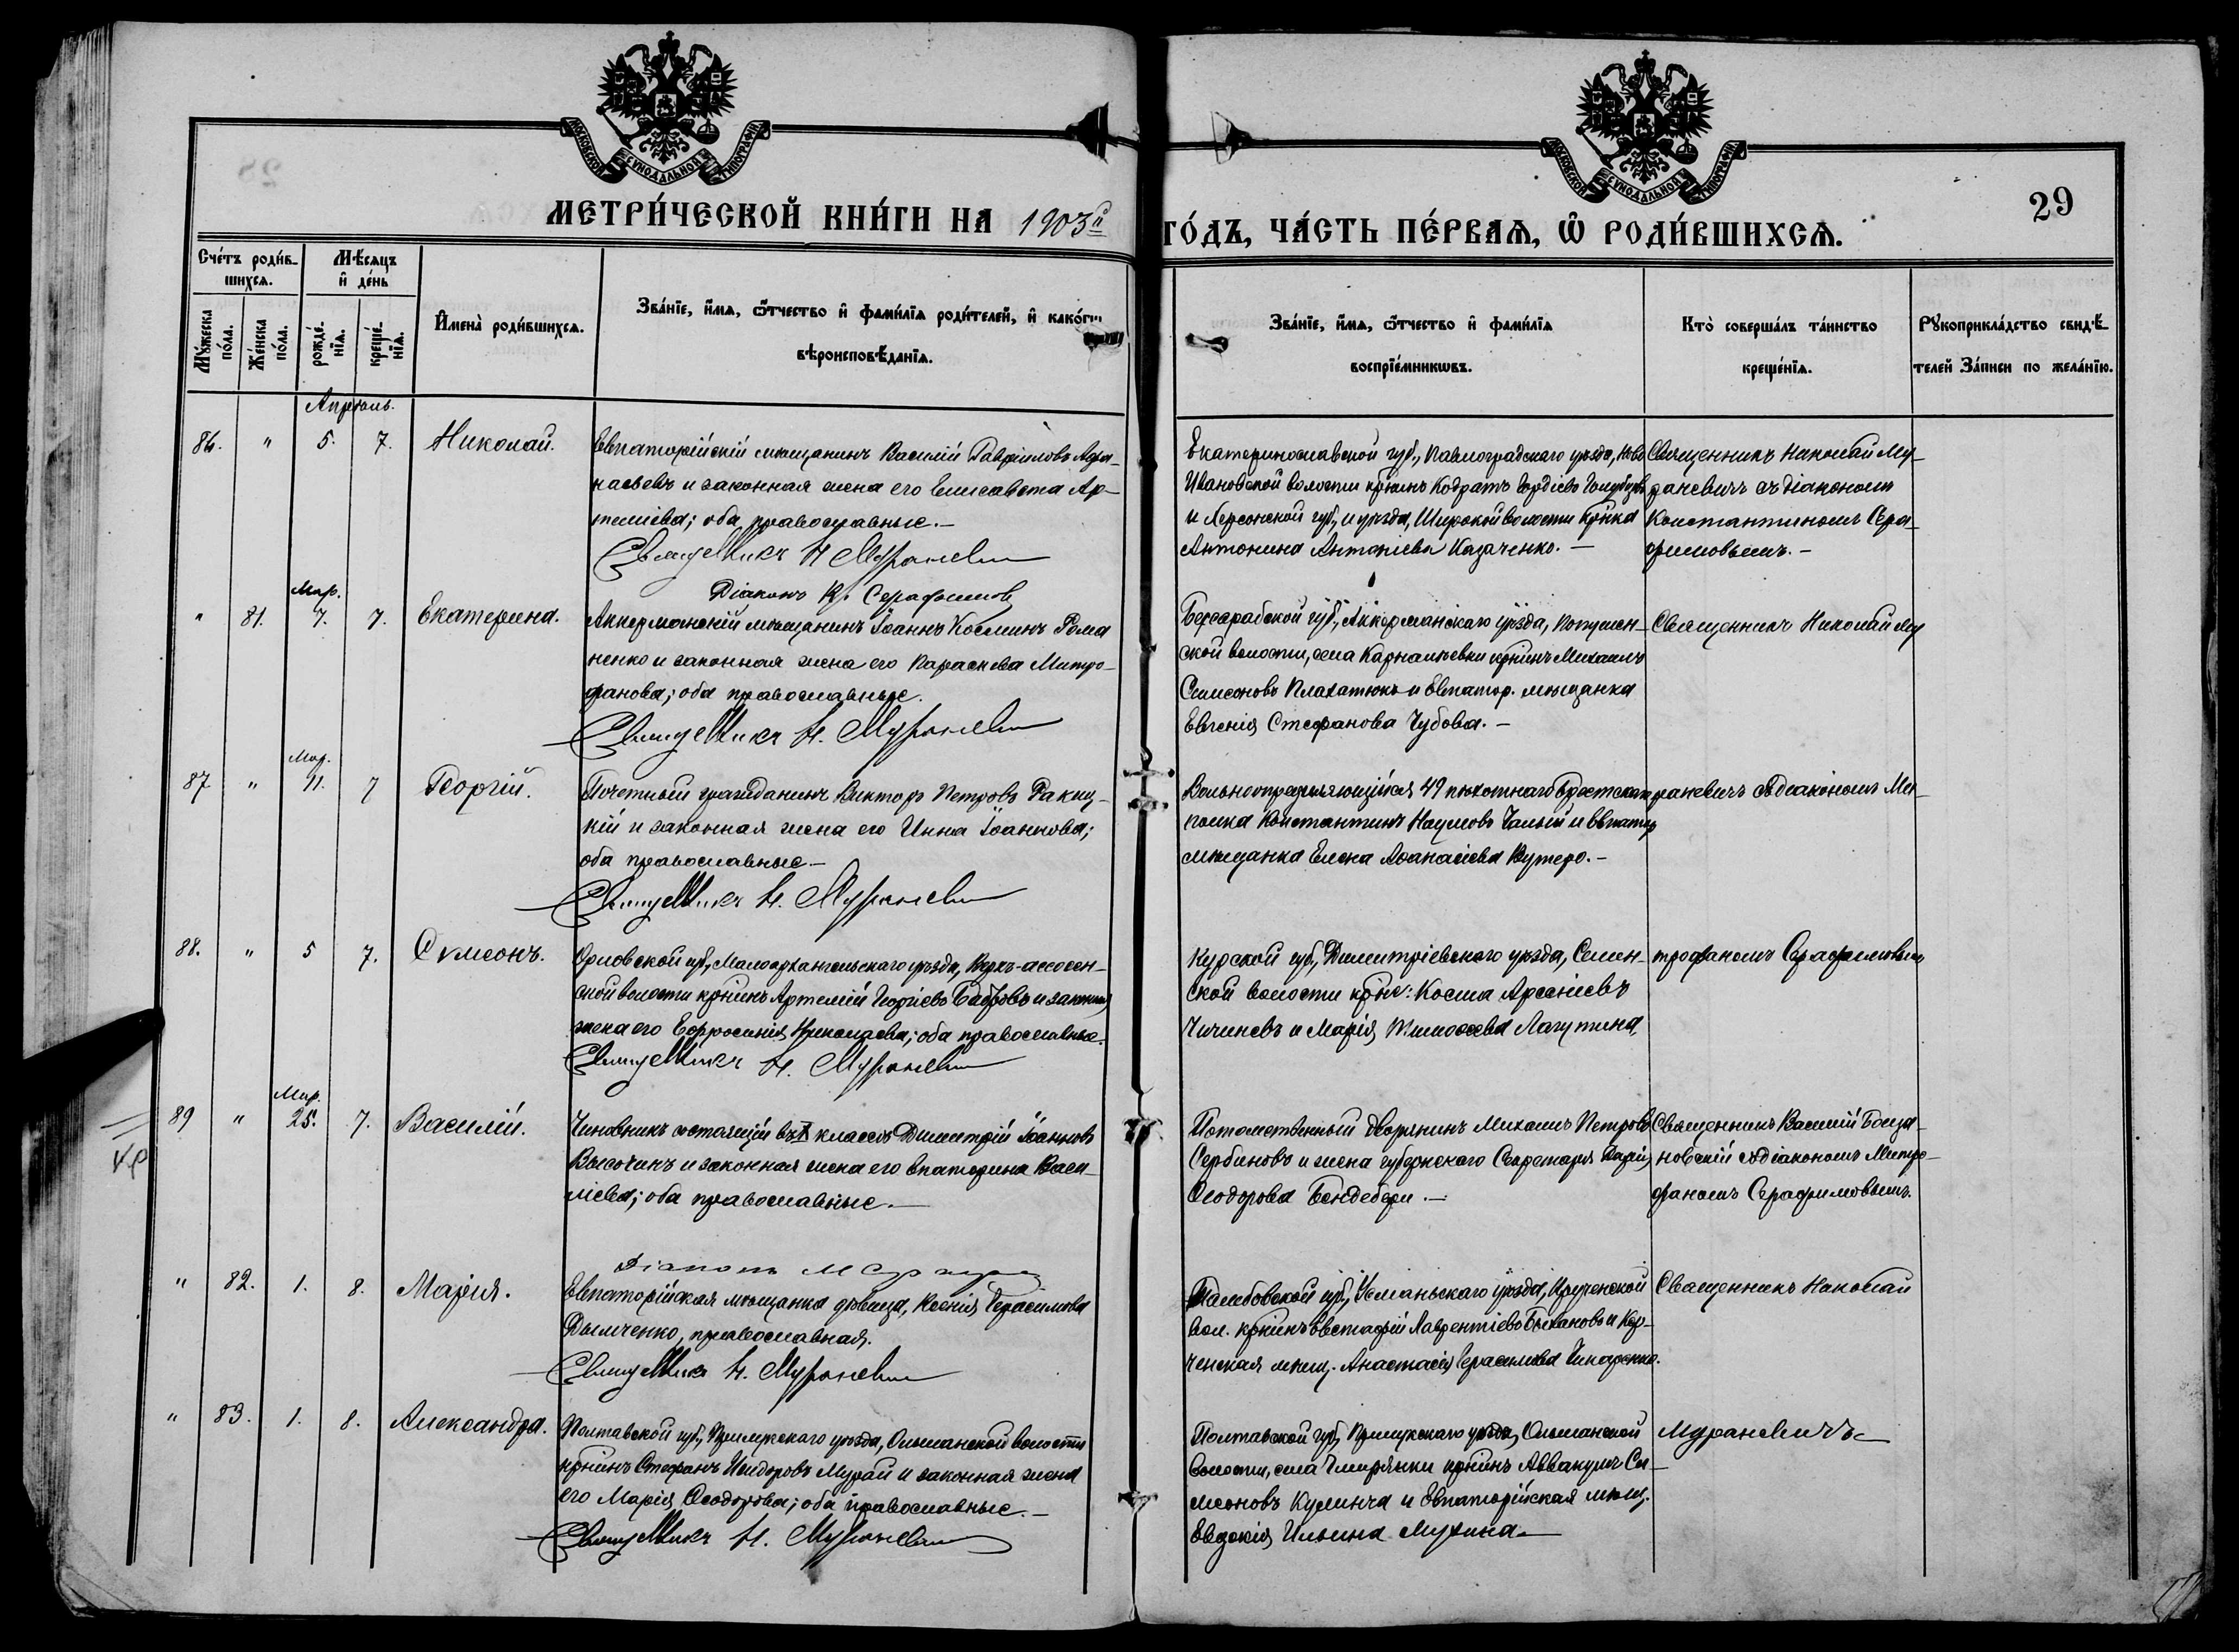 МОСКОВСКОЙ СУНОДАЛЬНОЙ ТИПОГРАФІИ
МОСКОВСКОЙ СУНОДАЛЬНОЙ ТИПОГРАФІИ
29
МЕТРИ́ЧЕСКОЙ КНИ́ГИ НА 1903й ГО́ДЪ, ЧА́СТЬ ПЕ́РВАѦ, Ѡ РОДИ́ВШИХСѦ.
Сче́тъ роди́в-
шихсѧ.
Мꙋ́жеска по́ла.
Же́нска по́ла.
Мѣ́сѧцъ
и҆ де́нь
рожде́-
нїѧ.
креще́-
нїѧ.
И҆мена̀ роди́вшихсѧ.
Зва́нїе, и҆́мѧ, ѻ҆́тчество и҆ фами́лїѧ роди́телей, и҆ како́гѡ
вѣроисповѣ́данїѧ.
Зва́нїе, и҆́мѧ, ѻ҆́тчество и҆ фами́лїѧ
воспрїе́мникѡвъ.
Кто̀ соверша́лъ та́инство
креще́нїѧ.
Рꙋкоприкла́дство свидѣ́-
телей за́писи по жела́нїю.
Апрѣль.
86. " 5. 7. Николай.
Евпаторійскій мѣщанинъ Василій Гавріиловъ Афа-
насьевъ и законная жена его Елисавета Ар-
теміева; оба православные.-
Священникъ Н Мураневич
Діаконъ К. Серафимов
Екатеринославской губ., Павлоградскаго уѣзда, Ново
Ивановской волости крнинъ Кодратъ Гордіевъ
и Херсонской губ., и уѣзда, Широкой волости крнка
Антонина Антоніева Казаченко.-
Священникъ Николай Му-
раневичъ съ діакономъ
Константиномъ Сера-
фимовымъ.-
Мар.
" 81. 7. 7. Екатерина.
Аккерманскій мѣщанинъ Іоаннъ Косминъ Рома
ненко и законная жена его Параскева Митро-
фанова; оба православные.
Священникъ Н. Мураневич
Бессарабской губ., Аккерманскаго уѣзда,
ской волости, села Карналѣевки крнинъ Михаилъ
Симеоновъ Плахатюкъ и Евпатор. мѣщанка
Евгенія Стефанова Чубова.-
Священникъ Николай Му
Мар.
87 " 11. 7 Георгій.
Почетный гражданинъ Викторъ Петровъ Ракиц-
кій и законная жена его Инна Іоаннова;
оба православные-
Священникъ Н. Мураневич
Вольноопредѣляющійся 49 пѣхотнаго Брестскаго
полка Константинъ Наумовъ Чалый и Евпатор
мѣщанка Елена Афанасіева Кутеро.-
раневичъ съ діакономъ Ми-
88. " 5 7. Сѵмеонъ.
Орловской губ., Малоархангельскаго уѣзда,
ской волости крнинъ Артемій Георгіевъ и законная
жена его Евфросинія Николаева; оба православные.
Священникъ Н. Мураневич
Курской губ., Димитріевскаго уѣзда, Семен-
ской волости крне: Косма Арсеніевъ
Чичиневъ и Марія Тимофеева Лагутина
трофаномъ Серафимовым
Мар.
89 " 25. 7. Василій.
Чиновникъ состоящій въ X классѣ Димитрій Іоанновъ
Высочинъ и законная жена его Екатерина Васи-
ліева; оба православные.-
Діаконъ М Сер
Потомственный дворянинъ Михаилъ Петровъ
Сербиновъ и жена губернскаго Секретаря Марія
Феодорова Бендебери.-
Священникъ Василій
новскій съ діакономъ Митро-
фаномъ Серафимовымъ.
" 82. 1. 8. Марія.
Евпаторійская мѣщанка дѣвица, Ксенія Герасимова
Дымченко, православная.
Священникъ Н. Мураневич
Тамбовской губ., Усманьскаго уѣзда,
вол. крнинъ Евстафій Лаврентіевъ Быхановъ и Кер-
ченская мѣщ. Анастасія Герасимова
Священникъ Николай
" 83. 1. 8. Александра.
Полтавской губ., Прилукскаго уѣзда, Ольшанской волости
крнинъ Стефанъ Исидоровъ Мурай и законная жена
его Марія Феодорова; оба православные.-
Священникъ Н. Мураневич
Полтавской губ., Прилукскаго уѣзда, Ольшанской
волости, села крнинъ Аввакумъ Си-
меоновъ Кулинча и Евпаторійская мѣщ.
Евдокія Ильина Мухина-
Мураневичъ-